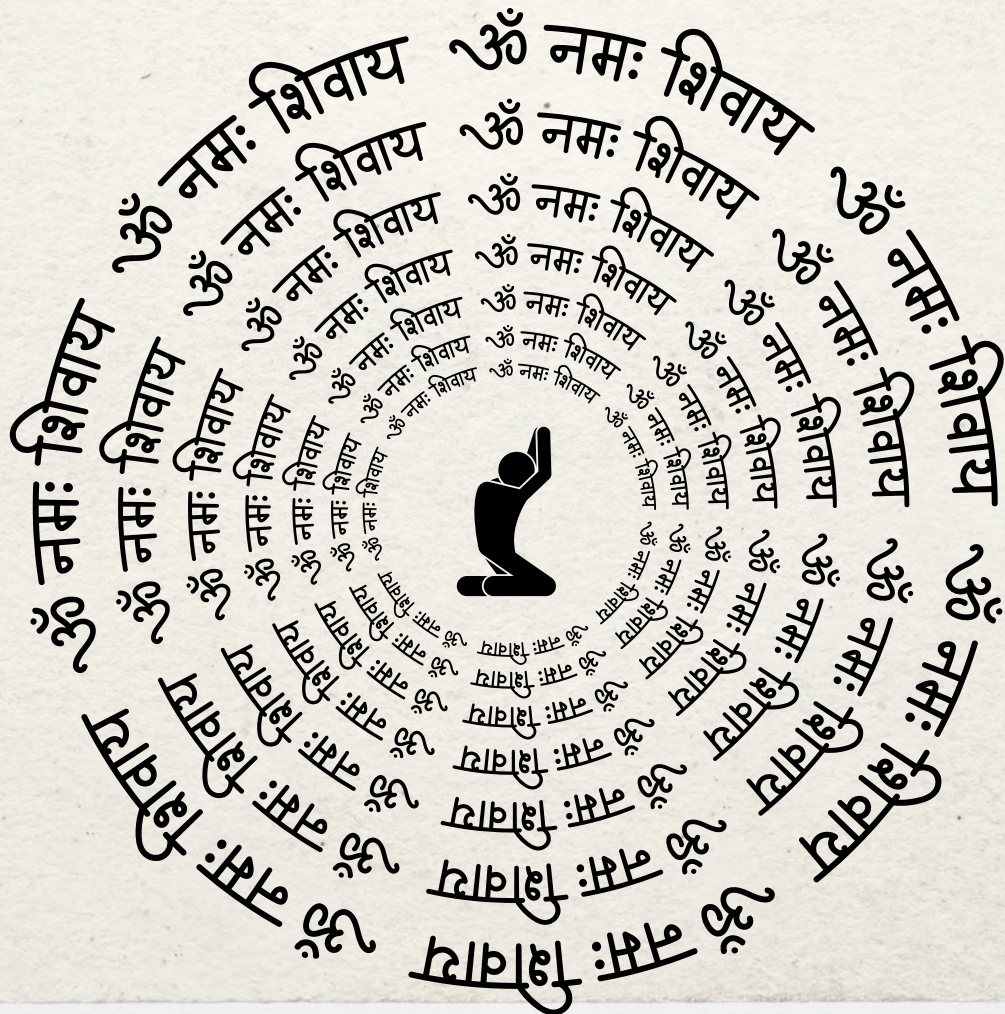 ॐ नमः शिवाय ॐ नमः शिवाय ॐ नमः शिवाय ॐ नमः शिवाय ॐ नमः शिवाय ॐ नमः शिवाय ॐ नमः शिवाय
ॐ नमः शिवाय ॐ नमः शिवाय ॐ नमः शिवाय ॐ नमः शिवाय ॐ नमः शिवाय ॐ नमः शिवाय ॐ नमः शिवाय
ॐ नमः शिवाय ॐ नमः शिवाय ॐ नमः शिवाय ॐ नमः शिवाय ॐ नमः शिवाय ॐ नमः शिवाय ॐ नमः शिवाय
ॐ नमः शिवाय ॐ नमः शिवाय ॐ नमः शिवाय ॐ नमः शिवाय ॐ नमः शिवाय ॐ नमः शिवाय ॐ नमः शिवाय
ॐ नमः शिवाय ॐ नमः शिवाय ॐ नमः शिवाय ॐ नमः शिवाय ॐ नमः शिवाय ॐ नमः शिवाय ॐ नमः शिवाय
ॐ नमः शिवाय ॐ नमः शिवाय ॐ नमः शिवाय ॐ नमः शिवाय ॐ नमः शिवाय ॐ नमः शिवाय ॐ नमः शिवाय
ॐ नमः शिवाय ॐ नमः शिवाय ॐ नमः शिवाय ॐ नमः शिवाय ॐ नमः शिवाय ॐ नमः शिवाय ॐ नमः शिवाय